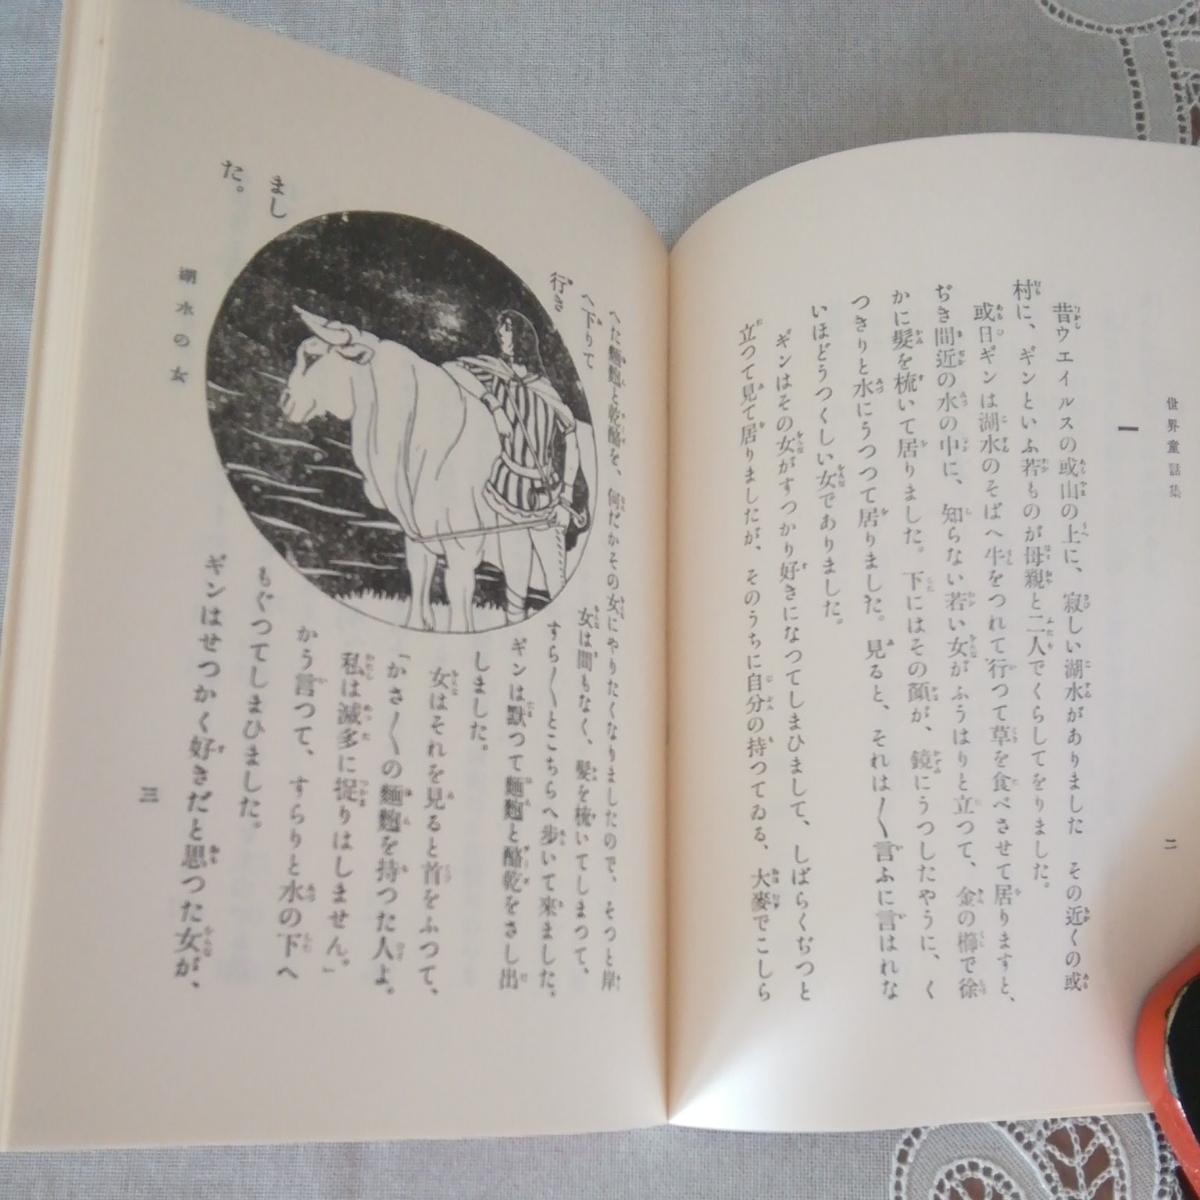 世界童話集
二
一
昔ウエイルスの或山の上に、寂しい湖水がありました その近くの或
村に、ギンといふ若ものが母親と二人でくらしてをりました。
或日ギンは湖水のそばへ牛をつれて行つて草を食べさせて居りますと、
ぢき間近の水の中に、知らない若い女がふうはりと立つて、金の櫛で徐
かに髮を梳いて居りました。下にはその顏が、鏡にうつしたやうに、く
つきりと水にうつつて居りました。見ると、それは〳〵言ふに言はれな
いほどうつくしい女でありました。
ギンはその女がすつかり好きになつてしまひまして、しばらくぢつと
立つて見て居りましたが、そのうちに自分の持つてゐる、大麥でこしら
へた麵麭と乾酪を、何だかその女にやりたくなりましたので、そつと岸
へ下りて行きました。
女は間もなく、髮を梳いてしまつて、
すら〳〵とこちらへ歩いて來ました。
ギンは默つて麵麭と酪乾をさし出
しました。
女はそれを見ると首をふつて、
「かさ〳〵の麵麭を持つた人よ。
私は滅多に捉りはしません。」
かう言つて、すらりと水の下へ
もぐつてしまひました。
ギンはせつかく好きだと思つた女が、
湖水の女
三